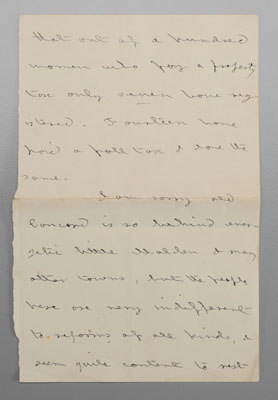 that out of a hundred
women who pay a property
tax only seven have reg-
istered. Fourteen have
paid a poll tax & done the
same.
I am sorry old
Concord is so behind ener-
getic little Malden & many
other towns, but the people
here are very indifferent
to reforms of all kinds, &
seem quite content to rest